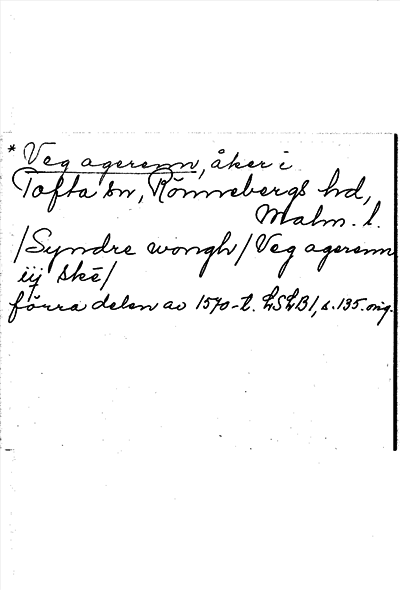 * Veg agerenn, åker i
Tofta sn, Rönnebergs hd,
Malm. l.
/Syndre wongh/ Veg agerenn
iij skē/
förra delen av 1570-t. LSLB1, s. 135. orig.